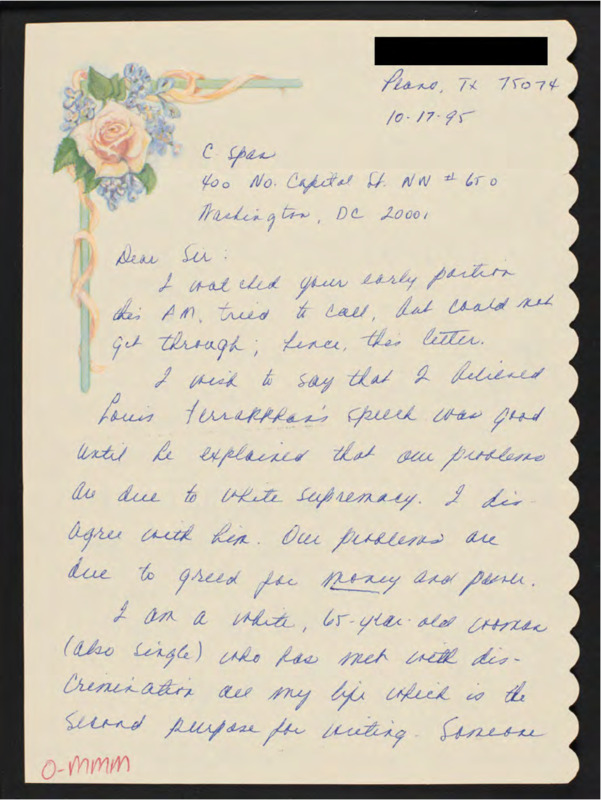 Plano, TX 75074
10-17-95
C Span
400 No. Capitol St. NW # 650
Washington, DC 20001
Dear Sir:
I watched your early portion
this AM, tried to call, but could not
get through; hence, this letter.
I wish to say that I believed
Louis Ferrakkhan's speech was good
until he explained that our problems
are due to white supremacy. I dis-
agree with him. Our problems are
due to greed for money and power.
I am a white, 65-year-old woman
(also single) who has met with dis-
crimination all my life which is the
second purpose for writing. Someone
O-MMM